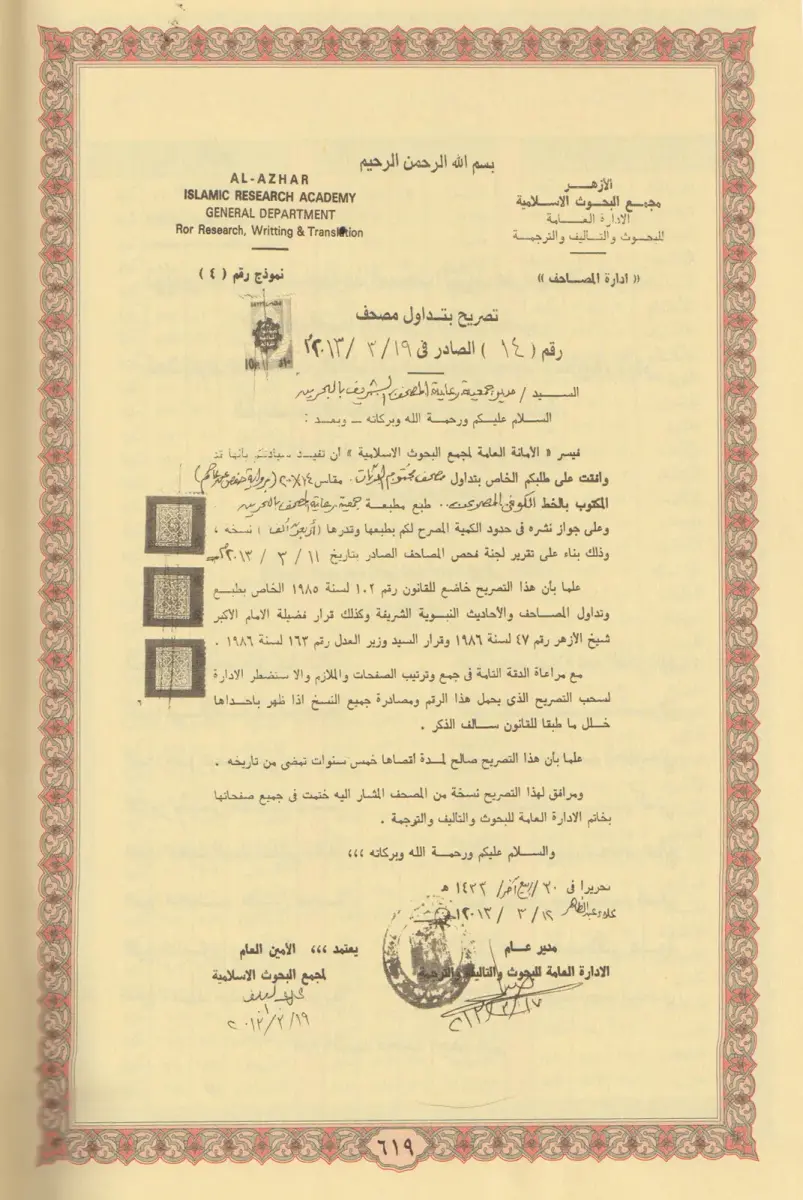 بسم الله الرحمن الرحيم
الأزهـــر
مجمـع البحـوث الاسـلامية
الادارة العـــامة
للبحـوث والتـأليف والترجمـة
AL-AZHAR
ISLAMIC RESEARCH ACADEMY
GENERAL DEPARTMENT
Ror Research, Writting & Translation
« ادارة المصـاحف »
نموذج رقم ( ٤ )
تصريح بتـداول مصحف
رقم ( ١٤ ) الصادر فى ١٩ / ٣ / ٢٠١٣
السـيد / مدير جمعية رعاية المصحف الشريف بالبحرين
السـلام عليـكم ورحمـة الله وبركاته ــ وبعـد :
فيسر « الأمانة العامة لمجمع البحوث الاسلامية » ان تفيـد سيادتكم بأنها قد
وافقت على طلبكم الخاص بتداول مصحف مقاس ١٤×٢٠ (برواية حفص عن عاصم)
المكتوب بالخط الكوفى .. طبع مطبعـة جمعية رعاية المصحف بالبحرين
وعلى جواز نشره فى حدود الكمية المصرح لكم بطبعها وقدرها (أربعون ألف) نسخة ،
وذلك بناء على تقرير لجنة فحص المصاحف الصادر بتاريخ ١١ / ٣ / ٢٠١٣
علما بأن هذا التصريح خاضع للقانون رقم ١٠٢ لسنة ١٩٨٥ الخاص بطبـع
وتداول المصـاحف والأحاديث النبـوية الشريفة وكذلك قرار فضيلة الامام الأكبر
شيخ الأزهر رقم ٤٧ لسنة ١٩٨٦ وقرار السيد وزير العدل رقم ١٦٣ لسنة ١٩٨٦ .
مع مراعاة الدقة التامة فى جمع وترتيب الصفحات والملازم والا ستضطر الادارة
لسحب التصريح الذى يحمل هذا الرقم ومصادرة جميع النسخ اذا ظهر باحداها
خلـل ما طبقا للقانون سـالف الذكر .
علما بأن هذا التصريح صالح لمـدة أقصاها خمس سنوات تمضى من تاريخه .
ومرافق لهذا التصريح نسخة من المصحف المشار اليه ختمت فى جميع صفحاتها
بخاتم الادارة العامة للبحوث والتأليف والترجمة .
والسـلام عليكم ورحمـة الله وبركاته ،،،
تحريرا فى ٣٠ / ربيع آخر / ١٤٣٤ هـ
١٢ / ٣ / ٢٠١٣
مدير عـام
الادارة العامة للبحوث والتأليف والترجمة
٢٠١٣/٣/١٧
يعتمد ،،، الأمين العام
لمجمع البحوث الاسلامية
٢٠١٣/٣/١٩
٦١٩